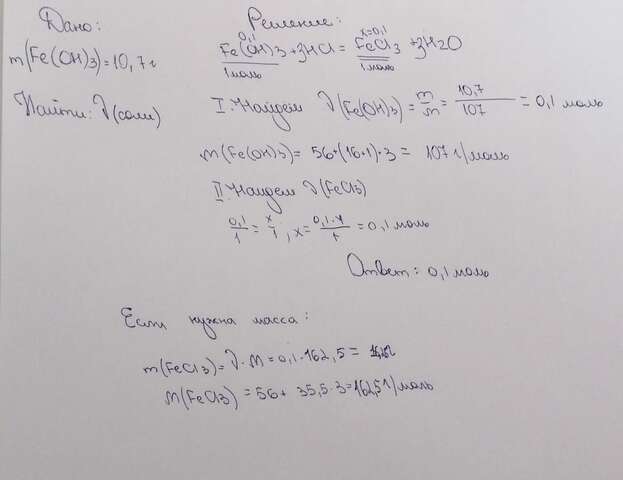 Дано:
m(Fe(OH)3)=10,7г
Найти: ν(соли)
Решение:
0,1 x=0,1
Fe(OH)3+3HCl = FeCl3 +3H2O
1моль 1моль
I. Найдем ν(Fe(OH)3) = m/m = 10,7/107 = 0,1 моль
m(Fe(OH)3) = 56+(16+1)·3 = 107 г/моль
II. Найдем ν(FeCl3)
0,1/1 = x/1, x= 0,1·1/1 = 0,1 моль
Ответ: 0,1 моль
Если нужна масса:
m(FeCl3)= ν·M = 0,1·162,5 =
M(FeCl3) = 56+ 35,5·3=162,5г/моль